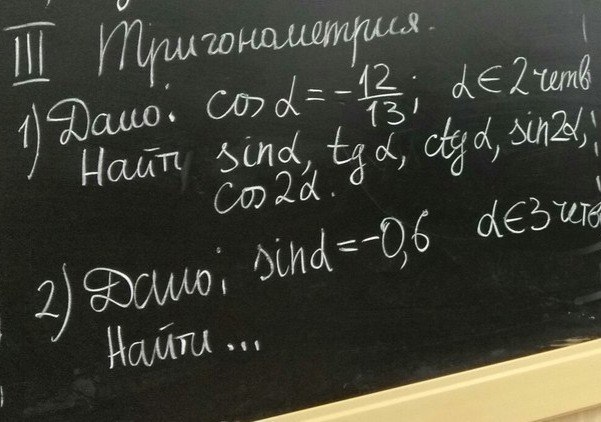 III Тригонометрия.
1) Дано: cos α = -12/13; α ∈ 2 четв
Найти sin α, tg α, ctg α, sin 2α,
cos 2α.
2) Дано; sin α = -0,6 α ∈ 3 четв
Найти ...